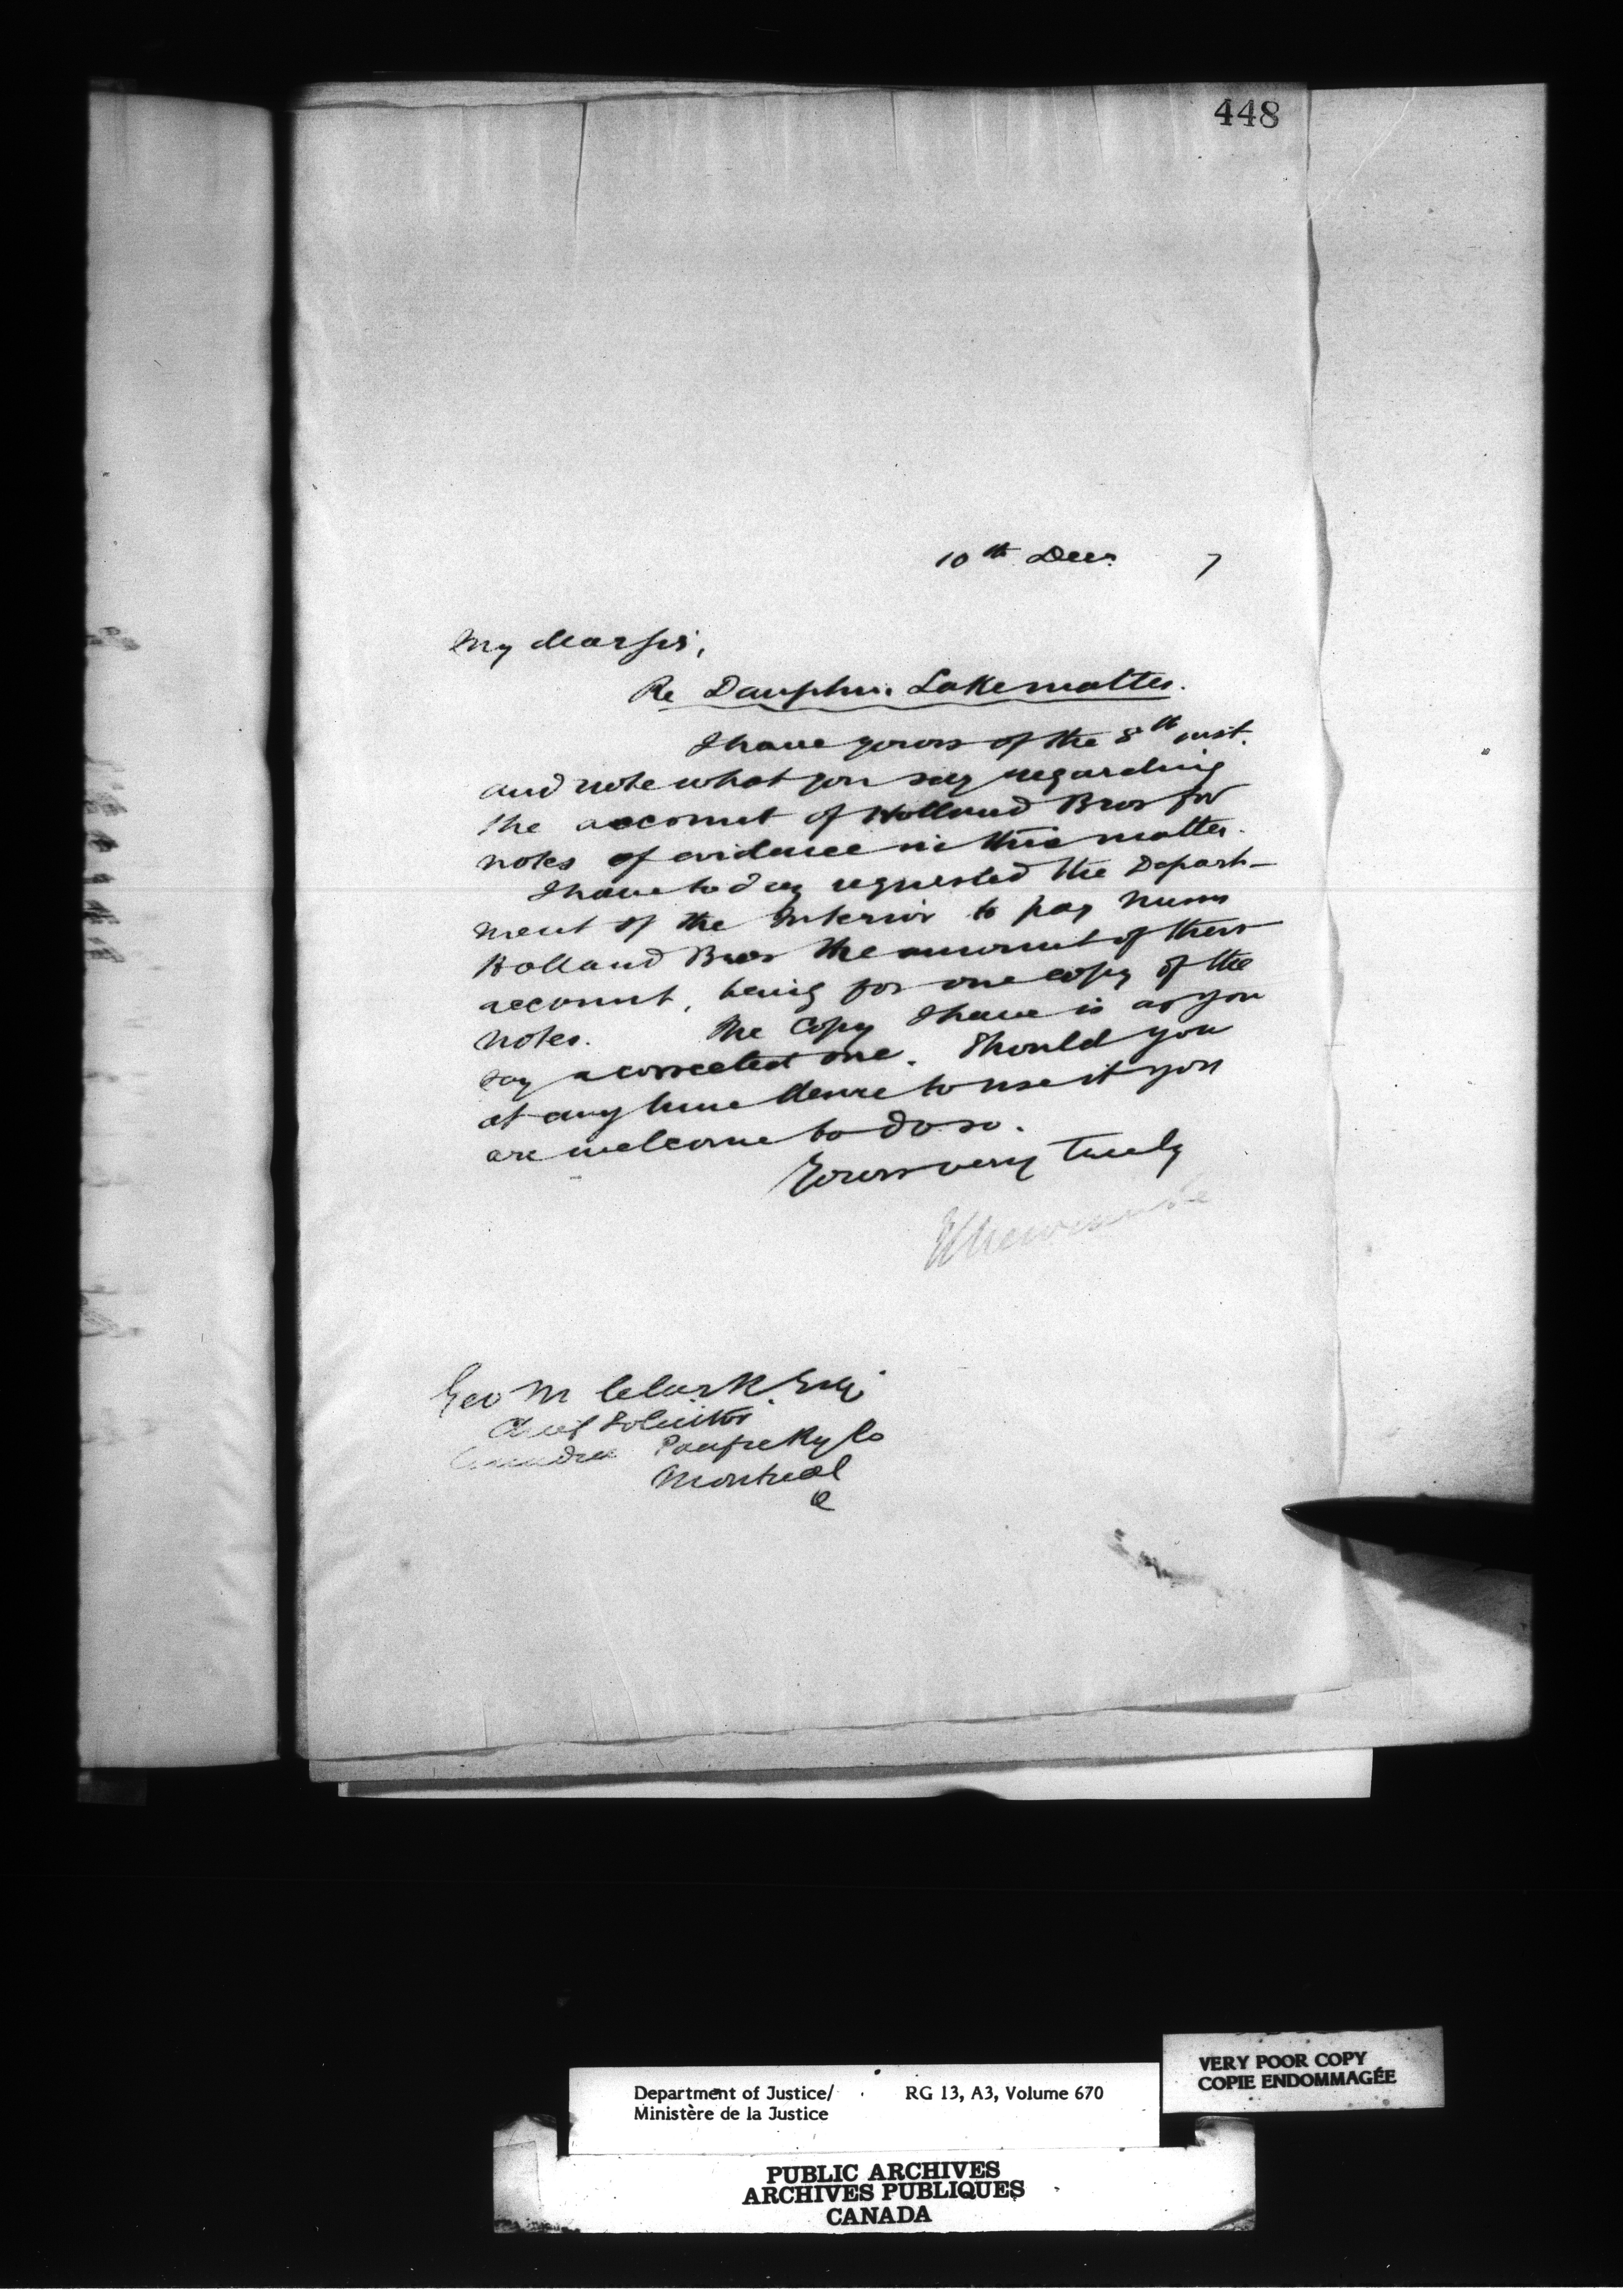 448
10th Decr. 7
My dear Sir,
Re Dauphin Lake matter.
I have yours of the 8th inst.
and note what you say regarding
the account of Holland Bros for
notes of evidence in this matter.
I have today requested the Depart-
ment of the Interior to pay Messrs
Holland Bros the amount of their
account, being for one copy of the
notes. The copy I have is as you
say a corrected one. Should you
at any time desire to use it you
are welcome to do so.
Yours very truly
Geo M Clark Esq.
Chief Solicitor
Canadian Pacific Ry Co
Montreal
Q
Department of Justice/ RG 13, A3, Volume 670
Ministère de la Justice
VERY POOR COPY
COPIE ENDOMMAGÉE
PUBLIC ARCHIVES
ARCHIVES PUBLIQUES
CANADA